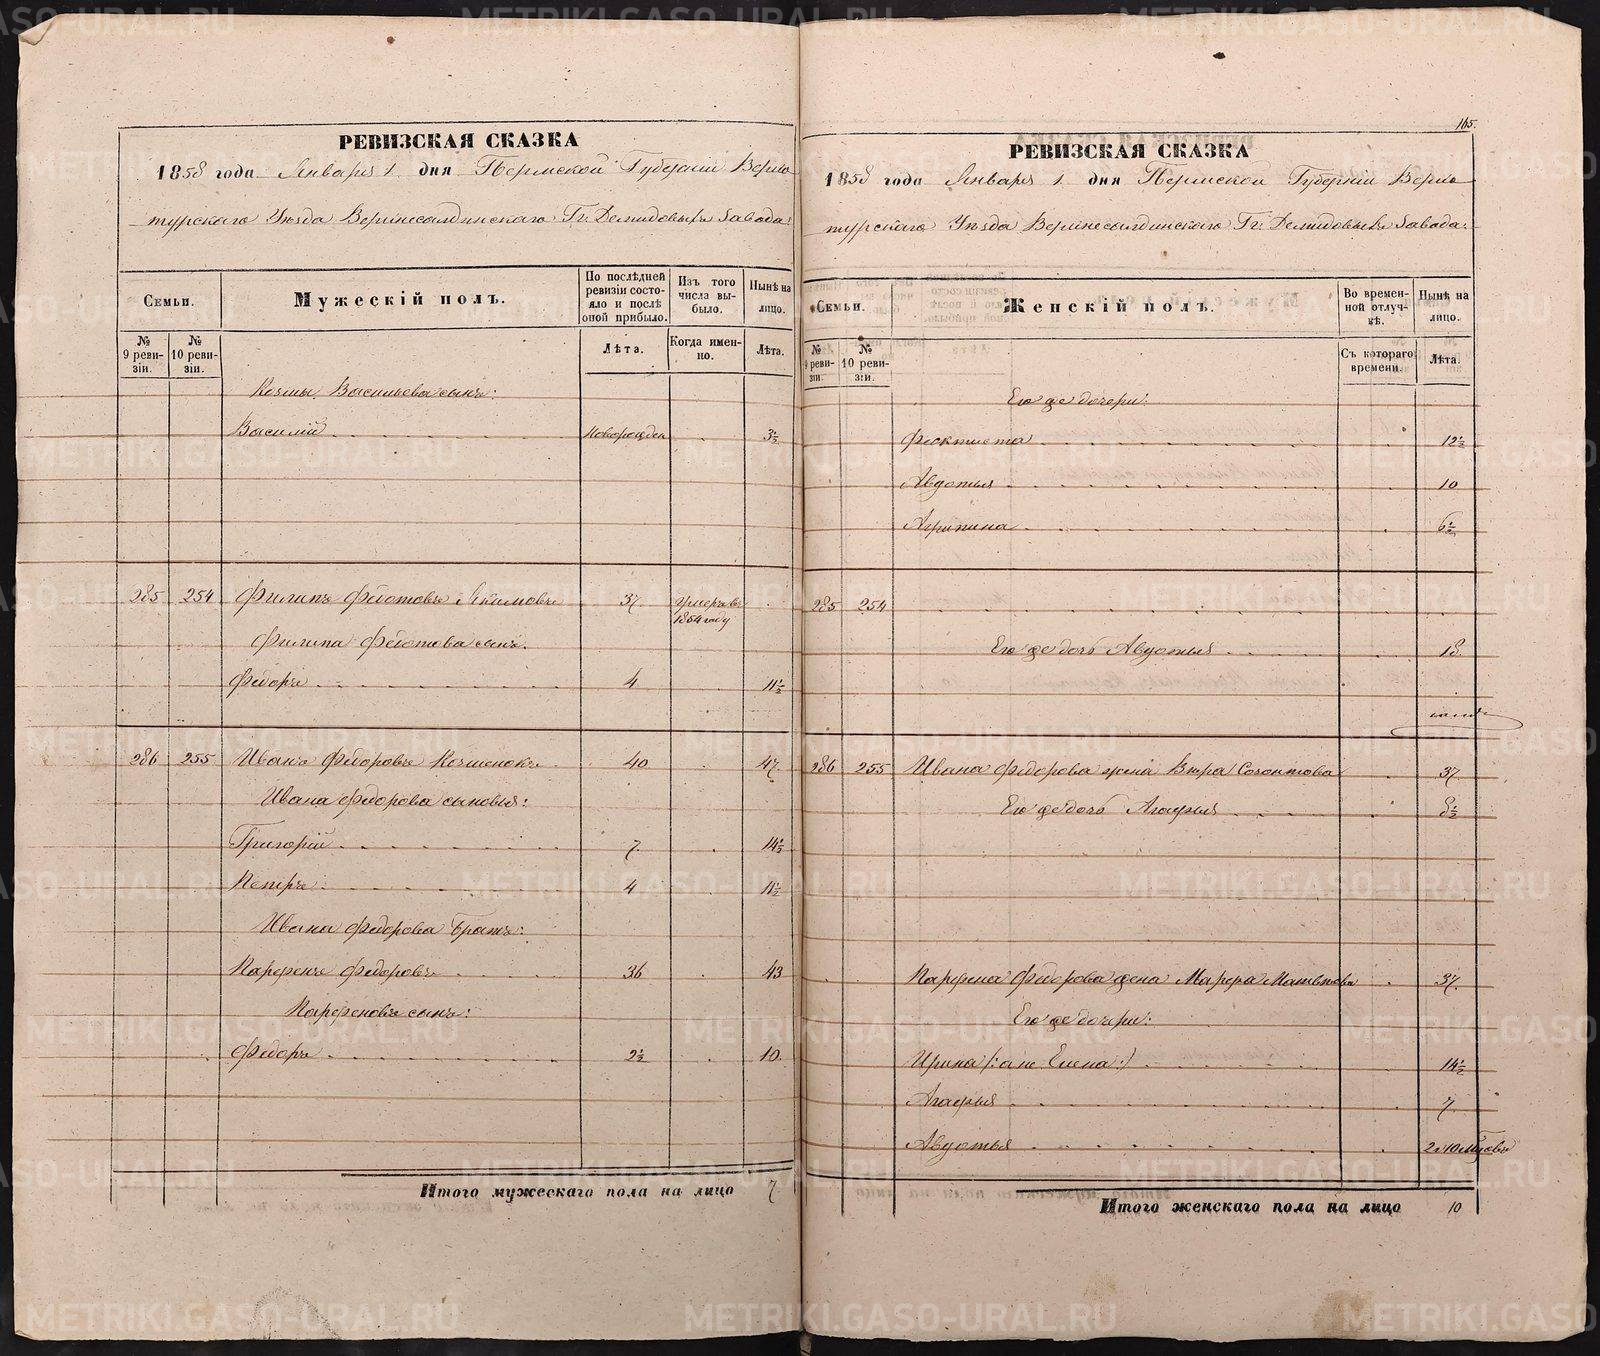 РЕВИЗСКАЯ СКАЗКА
1858 года Января 1 дня Пермской Губернии Верхо
турскаго Уѣзда Верхнесалдинскаго Гг. Демидовыхъ Завода:
Семьи.
Мужескій полъ.
По послѣдней ревизіи состояло и послѣ оной прибыло.
Изъ того числа выбыло.
Нынѣ на лицо.
№ 9 ревизіи.
№ 10 ревизіи.
Лѣта.
Когда именно.
Лѣта.
Козмы Васильева сынъ:
Василій новорожден 3½
285 254 Филипъ Федотовъ Якимовъ 37 Умеръ въ 1854 году
Филипа Федотова сынъ:
Федоръ 4 11½
286 255 Иванъ Федоровъ 40 47
Ивана Федорова сыновья:
Григорій 7 14½
Петръ 4 11½
Ивана Федорова Братъ:
Парфенъ Федоровъ 36 43
Парфеновъ сынъ:
Федоръ 2½ 10
Итого мужескаго пола на лицо 7.
165.
РЕВИЗСКАЯ СКАЗКА
1858 года Января 1 дня Пермской Губерніи Верхо
турскаго Уѣзда Верхнесалдинскаго Гг. Демидовыхъ Завода:
Семьи.
Женскій полъ.
Во временной отлучкѣ.
Нынѣ на лицо.
№ 9 ревизіи.
№ 10 ревизіи.
Съ котораго времени.
Лѣта.
Его же дочери:
Феоктиста 12½
Авдотья 10
Агрипина 6½
285 254
Его же дочь Авдотья 18
286 255 Ивана Федорова жена Вѣра Созонтова 37
Его же дочь Агафья 8½
Парфена Федорова жена Марфа Матвѣева 37.
Его же дочери:
Ирина (: а не Елена :) 14½
Агафья 7
Авдотья 2 10 мѣсовъ
Итого женскаго пола на лицо 10
METRIKI.GASO-URAL.RU